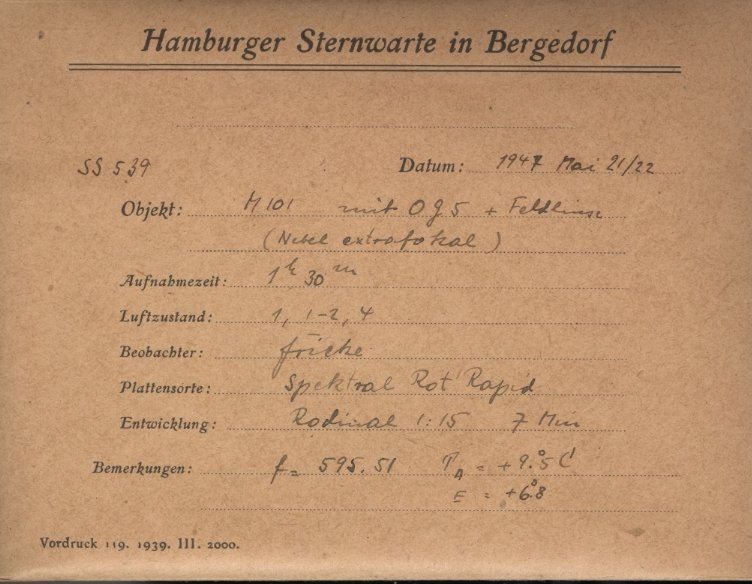 Hamburger Sternwarte in Bergedorf
SS 539 Datum: 1947 Mai 21/22
Objekt: M 101 mit OG 5 + Feldlinse
(Nebel extrafokal)
Aufnahmezeit: 1h 30m
Luftzustand: 1, 1-2, 4
Beobachter: Fricke
Plattensorte: Spektral Rot Rapid
Entwicklung: Rodinal 1:15 7 Min
Bemerkungen: f = 595.51 TA = +9°.5 C
E = +6°.8
Vordruck 119. 1939. III. 2000.